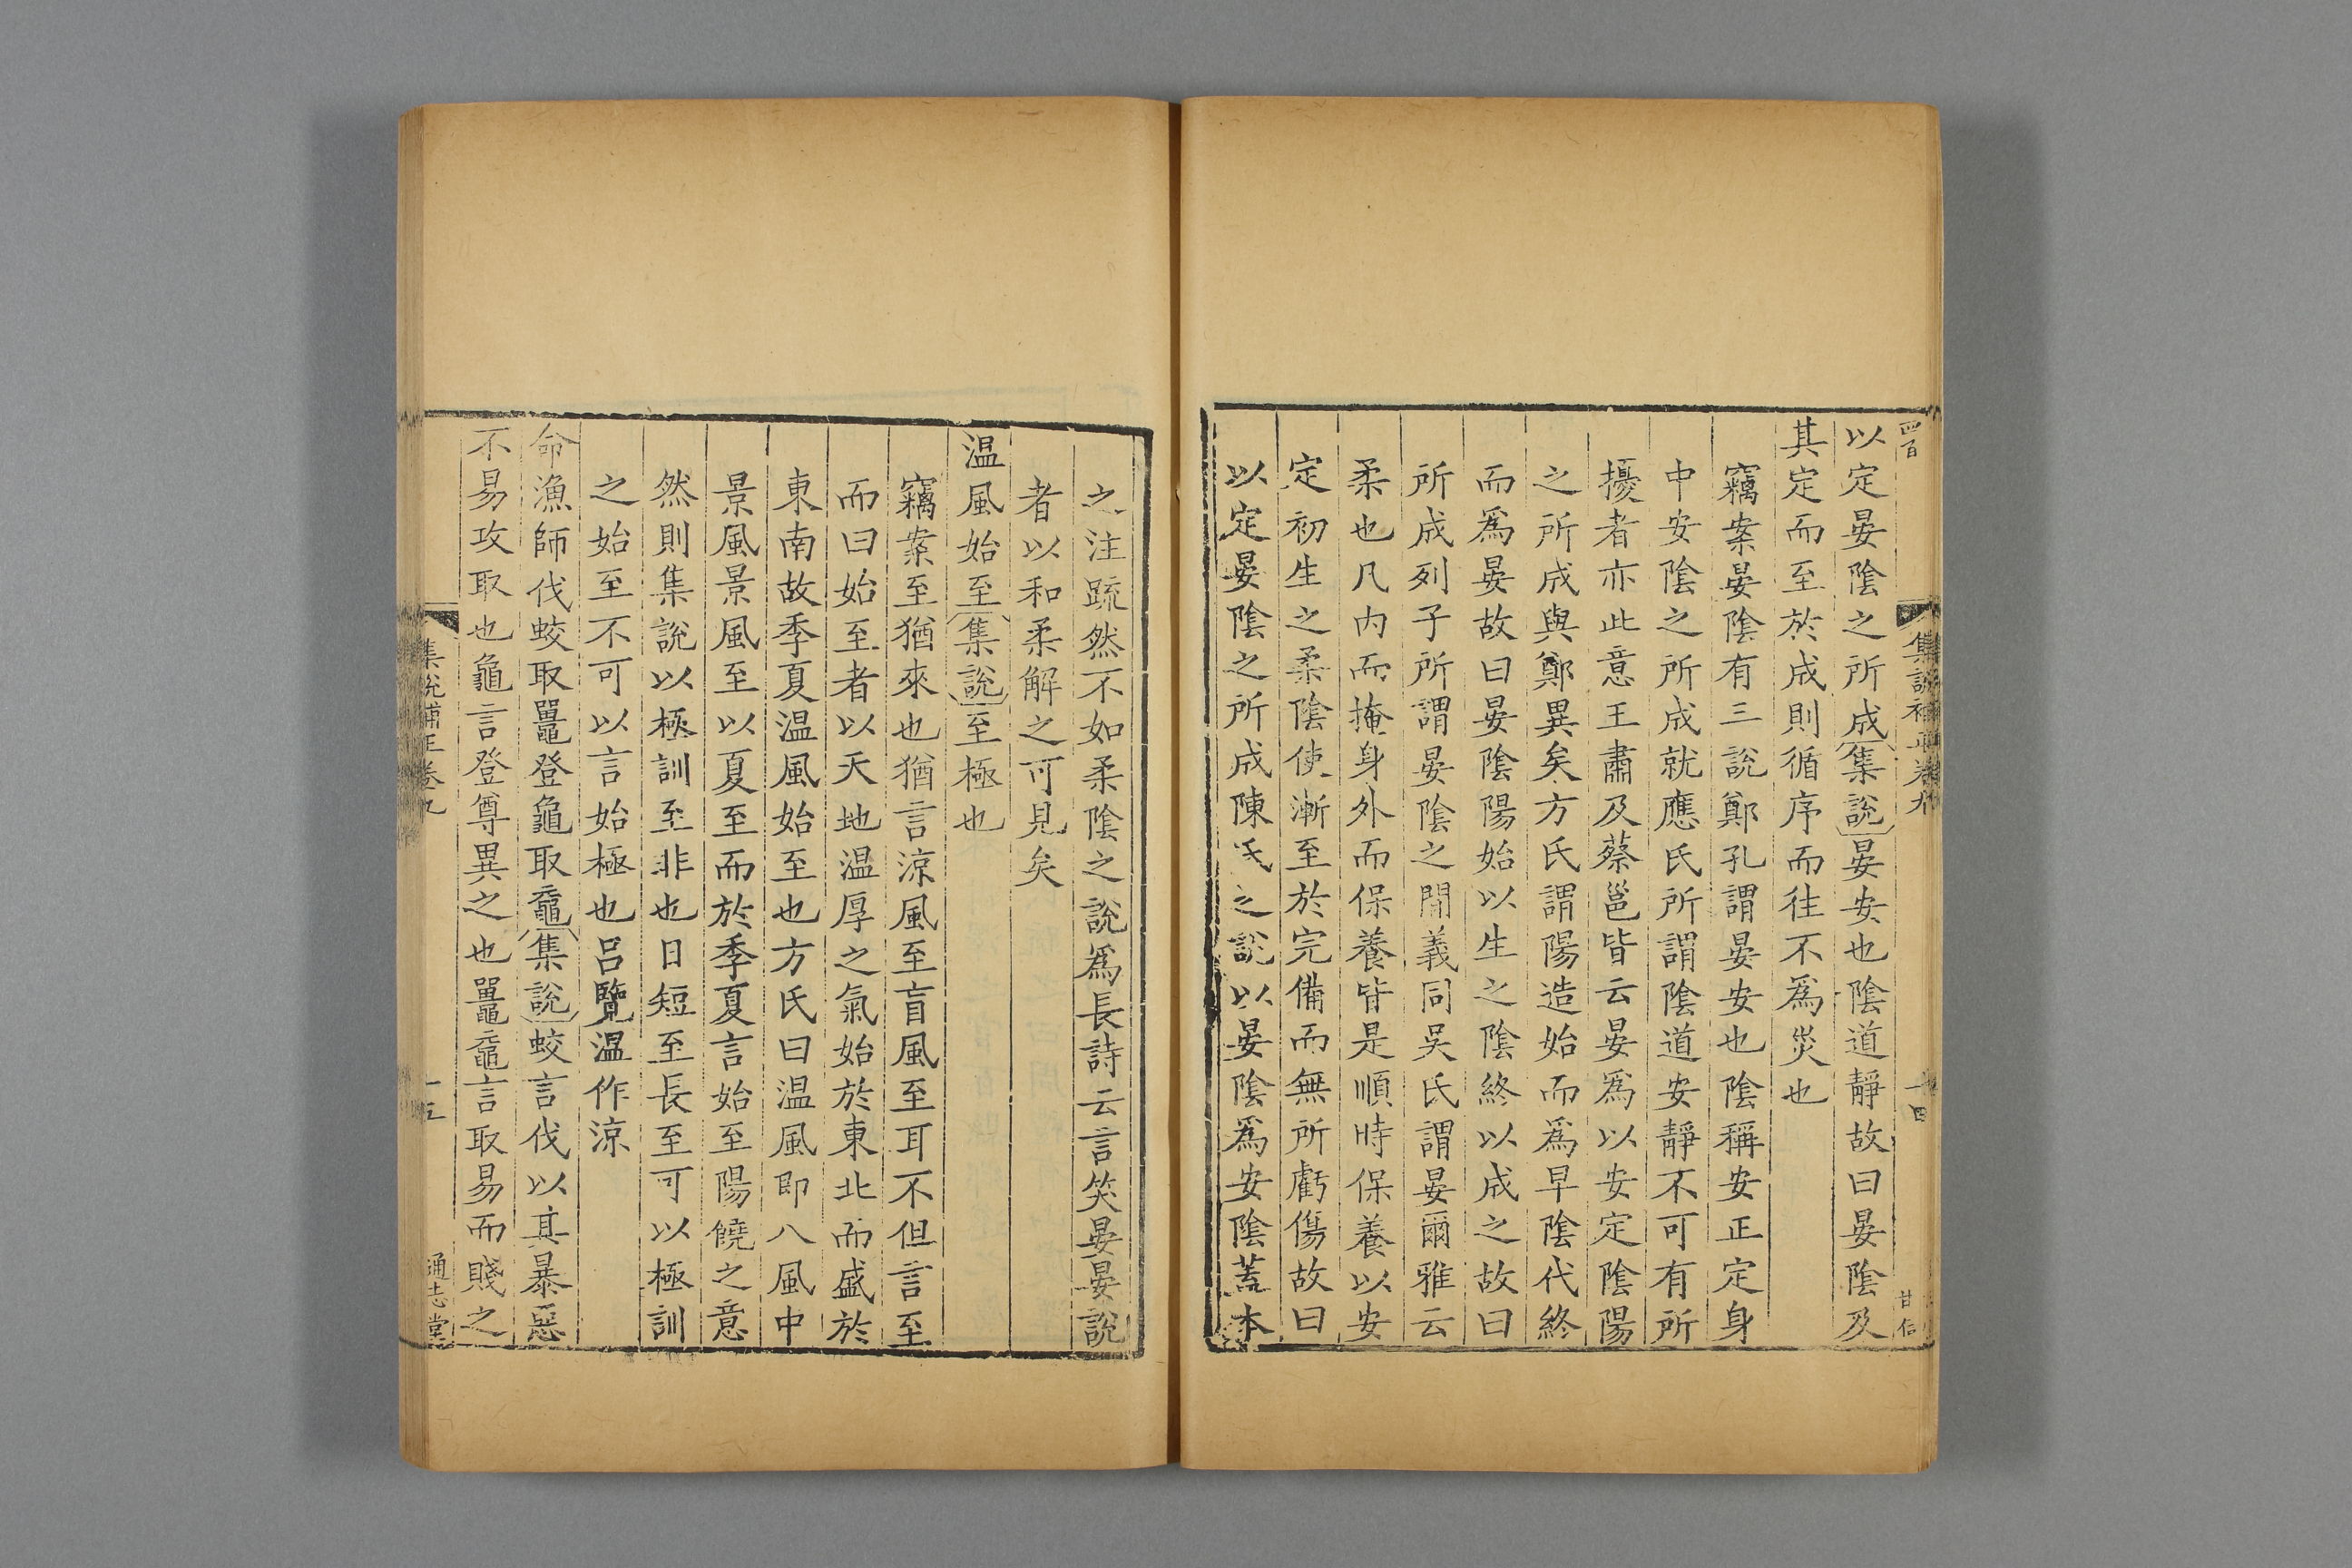 四百 集說補正卷九 十四 甘佀
以定晏陰之所成集說晏安也陰道靜故曰晏陰及
其定而至於成則循序而往不為災也
竊案晏陰有三說鄭孔謂晏安也陰稱安正定身
中安陰之所成就應氏所謂陰道安靜不可有所
擾者亦此意王肅及蔡邕皆云晏為以安定陰陽
之所成與鄭異矣方氏謂陽造始而為早陰代終
而為晏故曰晏陰陽始以生之陰終以成之故曰
所成列子所謂晏陰之閒義同吳氏謂晏爾雅云
柔也凡內而掩身外而保養皆是順時保養以安
定初生之柔陰使漸至於完備而無所虧傷故曰
以定晏陰之所成陳氏之說以晏陰為安陰蓋本
之注疏然不如柔陰之說為長詩云言笑晏晏說
者以和柔解之可見矣
温風始至集說至極也
竊案至猶來也猶言涼風至盲風至耳不但言至
而曰始至者以天地温厚之氣始於東北而盛於
東南故季夏温風始至也方氏曰温風即八風中
景風景風至以夏至而於季夏言始至陽饒之意
然則集說以極訓至非也日短至長至可以極訓
之始至不可以言始極也呂覽温作涼
命漁師伐蛟取鼉登龜取黿集說蛟言伐以其暴惡
不易攻取也龜言登尊異之也鼉黿言取易而賤之
集說補正卷九 十五 通志堂